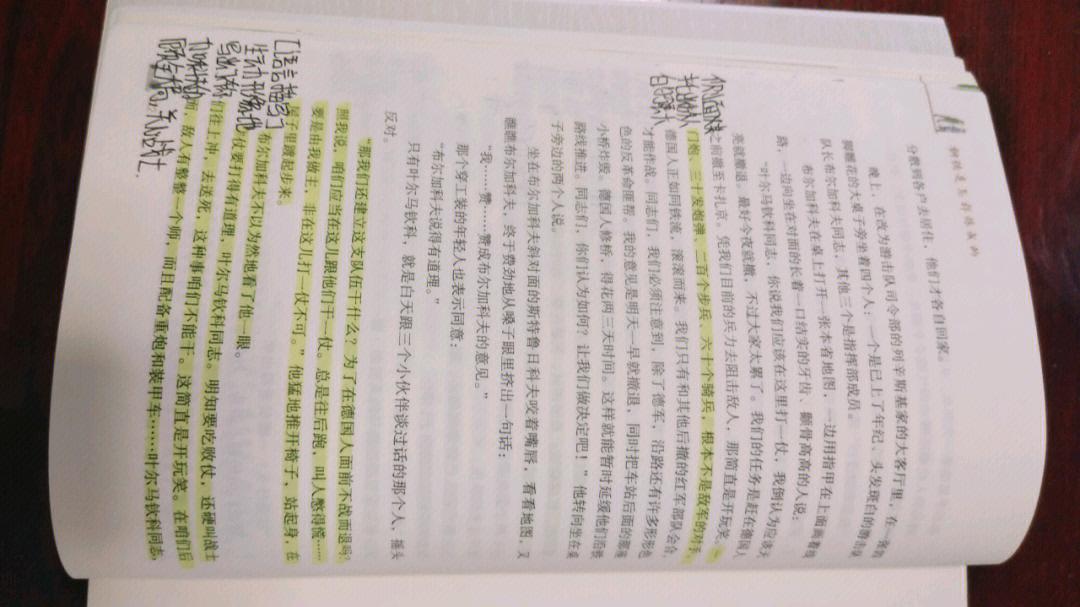 钢铁是怎样炼成的
分散到各户去居住，他们才各自回家。
晚上，在改为游击队司令部的列辛斯基家的大客厅里，在一张
脚雕花的大桌子旁坐着四个人：一个是已上了年纪、头发斑白的游击
队长布尔加科夫同志，其他三个是指挥部成员。
布尔加科夫在桌上打开一张本省地图，一边用指甲在上面画着
路，一边向坐在对面的长着一口结实的牙齿、颧骨高高的人说：
“叶尔马钦科同志，你说我们应该在这里打一仗，我倒认为应该天
亮就撤退。最好今夜就撤，不过大家太累了。我们的任务是赶在德国人
之前撤至卡扎京。凭我们目前的兵力去阻击敌人，那简直是开玩笑。一
门炮、三十发炮弹、二百个步兵、六十个骑兵，根本不是敌军的对手。
德国人正如同铁流，滚滚而来。我们只有和其他后撤的红军部队会合，
才能作战。同志们，我们必须注意到，除了德军，沿路还有许多形形色
色的反革命匪帮。我的意见是明天一早就撤退，同时把车站后面的那座
小桥炸毁。德国人修桥，得花两三天时间。这样就能暂时延缓他们沿铁
路线推进。同志们，你们认为如何？让我们做决定吧！”他转向坐在桌
子旁边的两个人说。
坐在布尔加科夫斜对面的斯特鲁日科夫咬着嘴唇，看看地图，又
瞧瞧布尔加科夫，终于费劲地从嗓子眼里挤出一句话：
“我……赞……赞成布尔加科夫的意见。”
那个穿工装的年轻人也表示同意：
“布尔加科夫说得有道理。”
只有叶尔马钦科，就是白天跟三个小伙伴谈过话的那个人，摇头
反对。
“那我们还建立这支队伍干什么？为了在德国人面前不战而退吗？
照我说，咱们应当在这儿跟他们干一仗。总是往后跑，叫人憋得慌……
要是由我做主，非在这儿打一仗不可。”他猛地推开椅子，站起身，在
屋子里踱起步来。
布尔加科夫不以为然地看了他一眼。
仗要打得有道理，叶尔马钦科同志。明知要吃败仗，还硬叫战士
们往上冲，去送死，这种事咱们不能干。这简直是开玩笑。在咱们后
面，敌人有整整一个师，而且配备重炮和装甲车……叶尔马钦科同志，
语言描写
生动形象地
顾全大局，关心战士.